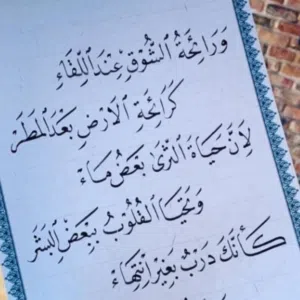 وَرَائِحَةُ الشَّوْقِ عِنْدَ اللِّقَاءِ
كَرَائِحَةِ الْأَرْضِ بَعْدَ الْمَطَرْ
لِأَنَّ حَيَاةَ الثَّرَىٰ بَعْضُ مَاءْ
وَتَحْيَا الْقُلُوبُ بِبَعْضِ الْبَشَرْ
كَأَنَّكَ دَرْبٌ بِغَيْرِ انْتِهَاءْ